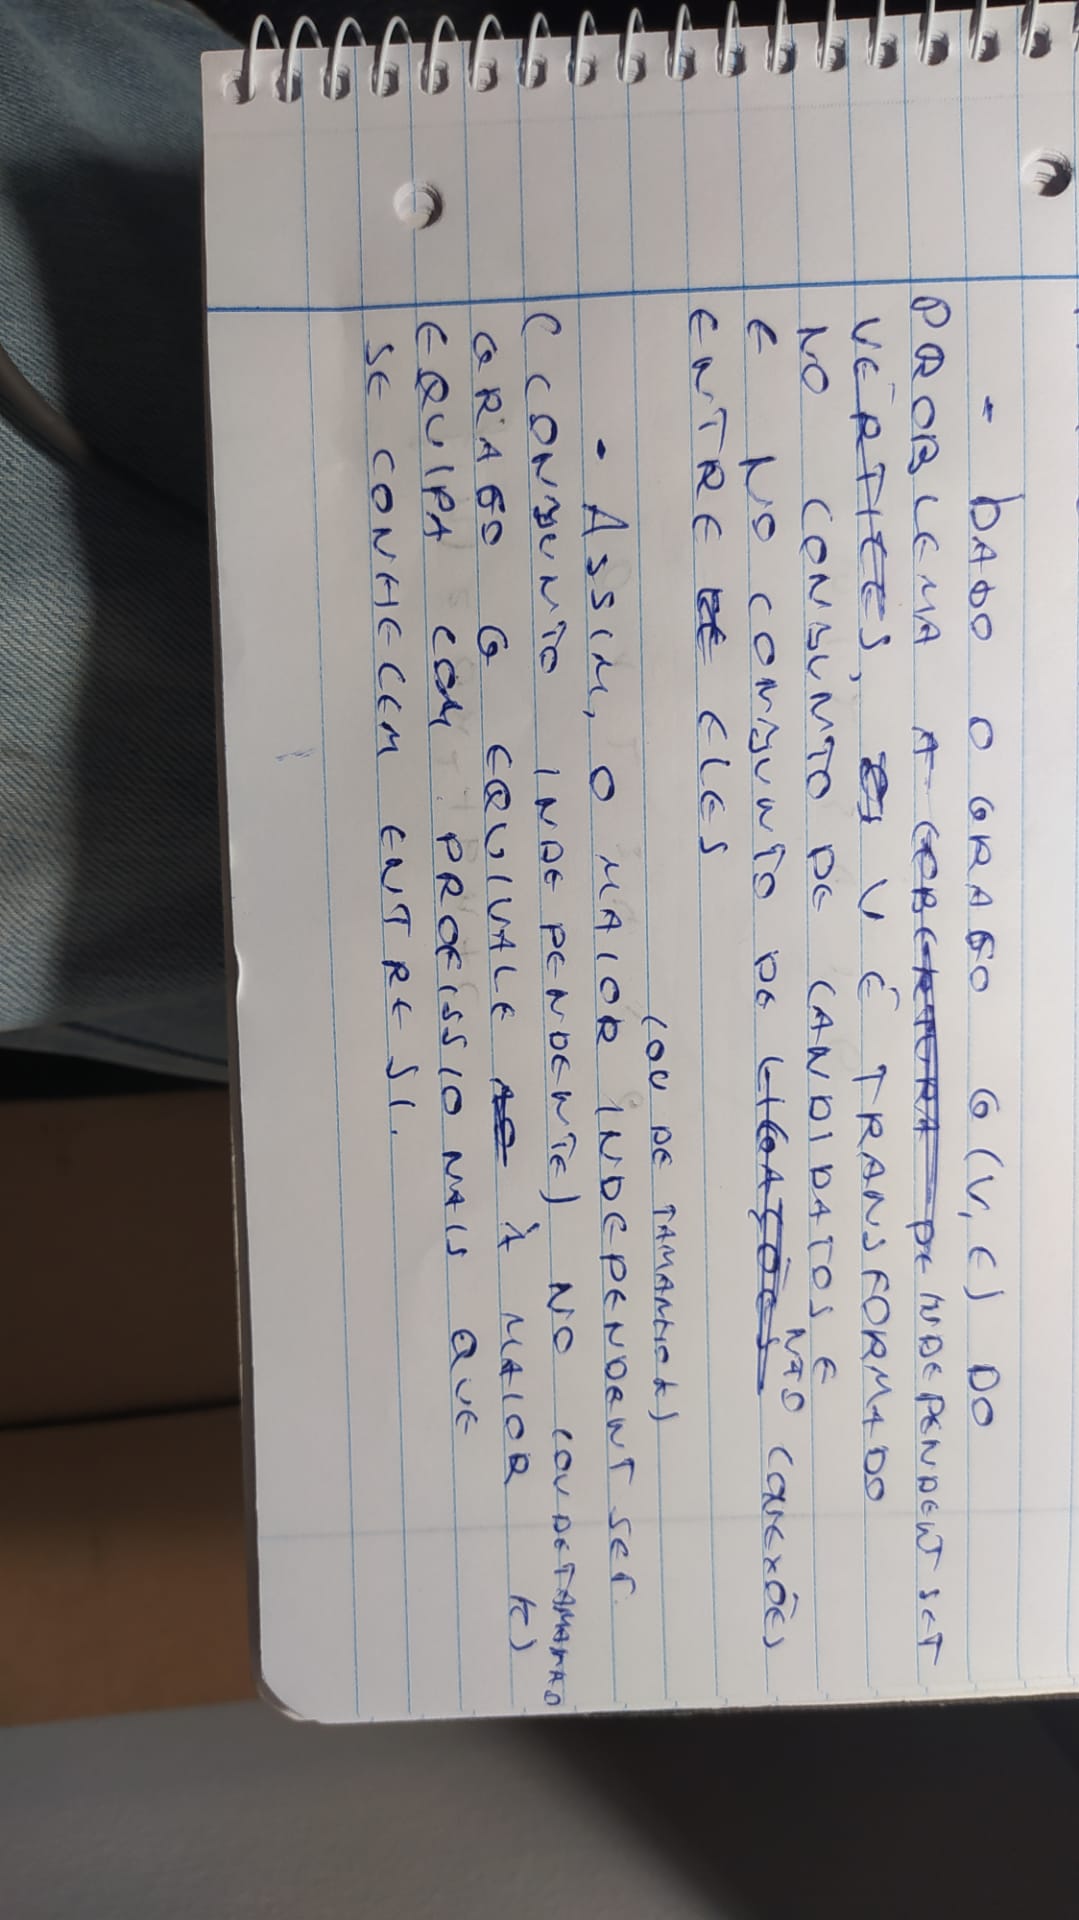 - DADO O GRAFO G(V, E) DO
PROBLEMA A COBERTURA DE INDEPENDENT SET
VÉRTICES, V É TRANSFORMADO
NO CONJUNTO DE CANDIDATOS E
E NO CONJUNTO DE LIGAÇÕES NÃO CONEXÕES
ENTRE ELES
(OU DE TAMANHO K)
- ASSIM, O MAIOR INDEPENDENT SET
(CONJUNTO INDEPENDENTE) NO (OU DE TAMANHO
GRAFO G EQUIVALE AO À MAIOR K)
EQUIPA COM PROFISSIONAIS QUE
SE CONHECEM ENTRE SI.